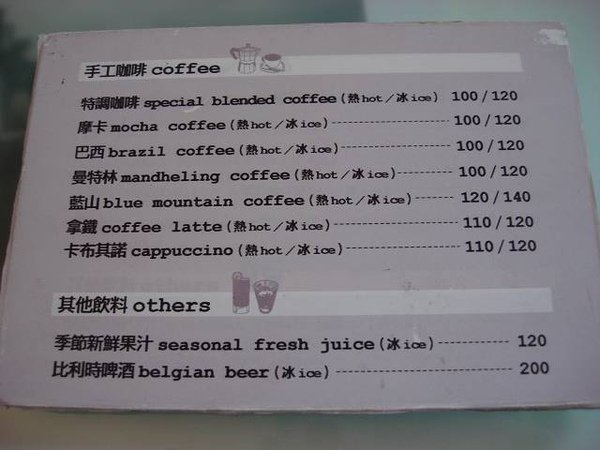 手工咖啡 coffee
特調咖啡 special blended coffee (熱hot／冰ice) 100 / 120
摩卡 mocha coffee (熱hot／冰ice) ---------------- 100 / 120
巴西 brazil coffee (熱hot／冰ice) --------------- 100 / 120
曼特林 mandheling coffee (熱hot／冰ice) -------- 100 / 120
藍山 blue mountain coffee (熱hot／冰ice) ------ 120 / 140
拿鐵 coffee latte (熱hot／冰ice) ----------------- 110 / 120
卡布其諾 cappuccino (熱hot／冰ice) --------------- 110 / 120
其他飲料 others
季節新鮮果汁 seasonal fresh juice (冰ice) ---------- 120
比利時啤酒 belgian beer (冰ice) ------------------------ 200